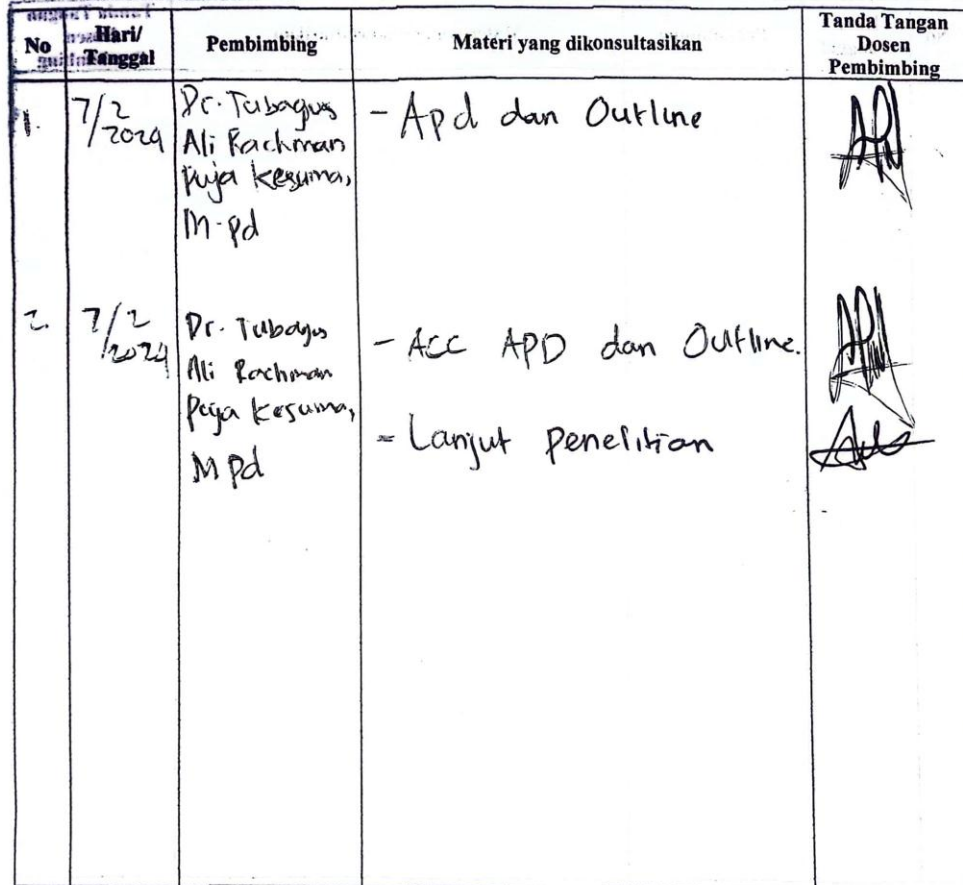 No
Hari/
Tanggal
Pembimbing
Materi yang dikonsultasikan
Tanda Tangan
Dosen
Pembimbing
1.
7/2
2024
Dr. Tubagus
Ali Rachman
Puja Kesuma,
M.Pd
- Apd dan Outline
2.
7/2
2024
Dr. Tubagus
Ali Rachman
Puja Kesuma,
M Pd
- Acc APD dan Outline.
- Lanjut penelitian